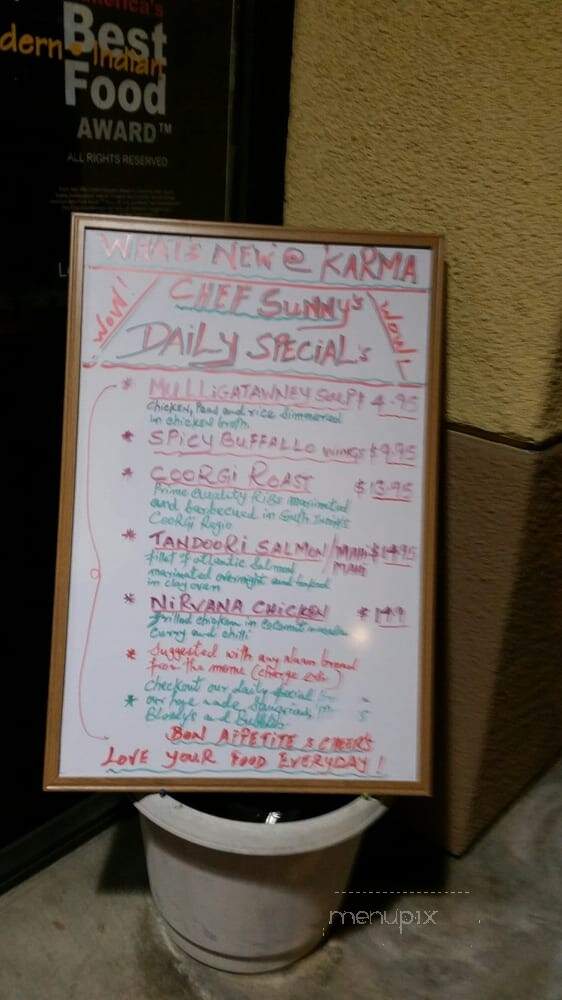 America's
Best
dern • Indian
Food
AWARD™
ALL RIGHTS RESERVED
WHATS NEW @ KARMA
WOW! CHEF SUNNY's WOW!
DAILY SPECIAL's
* MULLIGATAWNEY SOUP $ 4.95
chicken, Peas and rice Simmered
in chicken broth
* SPICY BUFFALLO WINGS $ 9.95
* COORGI ROAST $ 13.95
Prime quality Ribs marinated
and barbecued in South India's
COORGI Regio
* TANDOORI SALMON / MAHI MAHI $ 14.95
fillet of atlantic Salmon
marinated overnight and
in clay oven
* NIRVANA CHICKEN $
Grilled chicken in Coconut masala
curry and chilli
* Suggested with any naan bread
from the menue (charge extra)
checkout our daily special
* our made Sangrias,
Bloody's and
BON APPETITE & CHEERS
LOVE YOUR FOOD EVERYDAY !
menupix